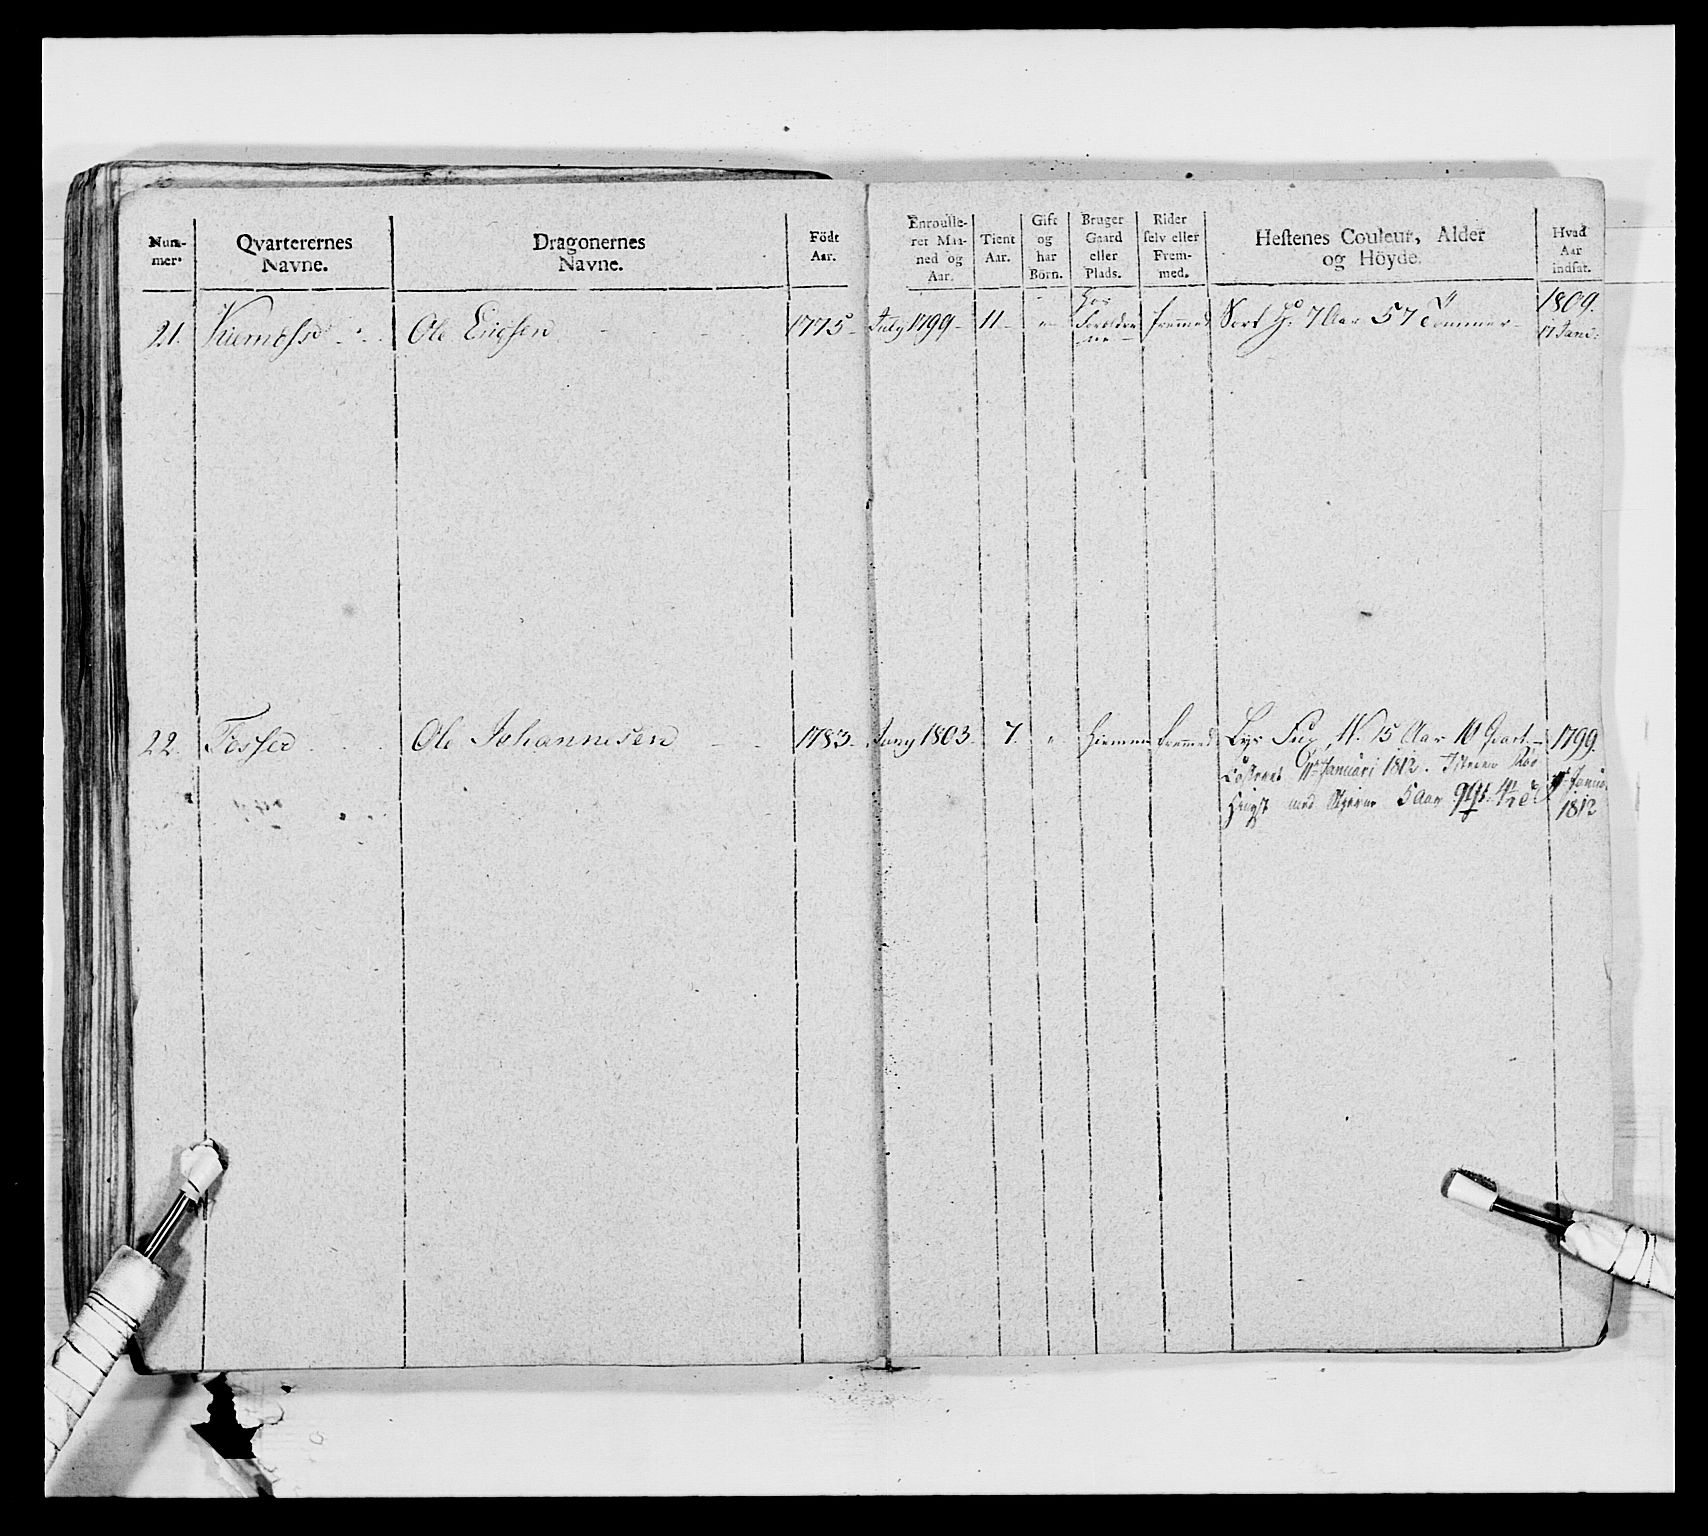 Num-
mer.
Qvarterernes
Navne.
Dragonernes
Navne.
Födt
Aar.
Enroulle-
ret Maa-
ned og
Aar.
Tient
Aar.
Gift
og
har
Börn.
Bruger
Gaard
eller
Plads.
Rider
selv eller
Frem-
med.
Hestenes Couleur, Alder
og Höyde.
Hvad
Aar
indsat.
21. Ole Ericsen 1775 July 1799 11 hos fremmed Sort H: 7 Aar 57 Tommer 1809.
Foreldre 17 Janu:
ne
22. Fosser Ole Johannesen 1783 Juny 1803 7. Hiemme fremmed Lys Fux W. 15 Aar 10 Qvart 1799.
Januari 1812. Januar
Hingst med Stjerne 5 Aar 9 1812